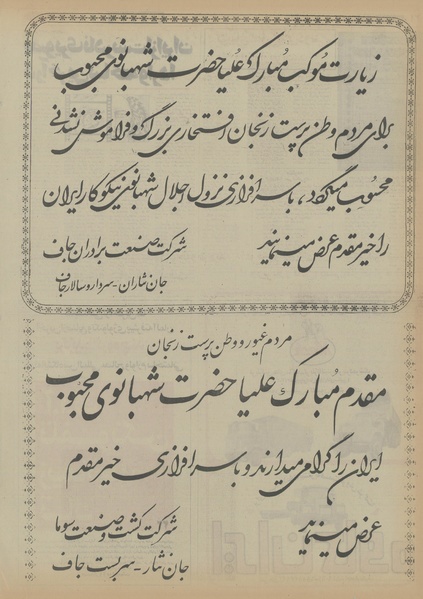 زیارت موکب مبارک علیا حضرت شهبانوی محبوب
برای مردم وطن پرست زنجان افتخاری بزرگ و فراموش نشدنی
محسوب میگردد، با سرافرازی نزول اجلال شهبانوی نیکوکار ایران
را خیر مقدم عرض مینمایند
شرکت صنعت برادران جاف
جان نثاران - سردار و سالار جاف
مردم غیور و وطن پرست زنجان
مقدم مبارک علیا حضرت شهبانوی محبوب
ایران را گرامی میدارند و با سرافرازی خیر مقدم
عرض مینمایند
شرکت کشت و صنعت سوما
جان نثار - سربست جاف